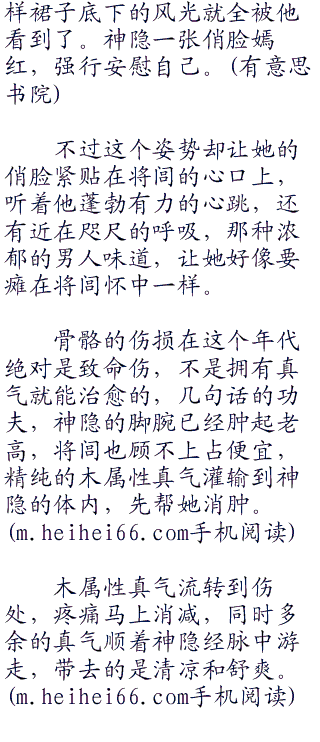 样裙子底下的风光就全被他
看到了。神隐一张俏脸嫣
红，强行安慰自己。(有意思
书院)
不过这个姿势却让她的
俏脸紧贴在将闾的心口上，
听着他蓬勃有力的心跳，还
有近在咫尺的呼吸，那种浓
郁的男人味道，让她好像要
瘫在将闾怀中一样。
骨骼的伤损在这个年代
绝对是致命伤，不是拥有真
气就能治愈的，几句话的功
夫，神隐的脚腕已经肿起老
高，将闾也顾不上占便宜，
精纯的木属性真气灌输到神
隐的体内，先帮她消肿。
(m.heihei66.com手机阅读)
木属性真气流转到伤
处，疼痛马上消减，同时多
余的真气顺着神隐经脉中游
走，带去的是清凉和舒爽。
(m.heihei66.com手机阅读)